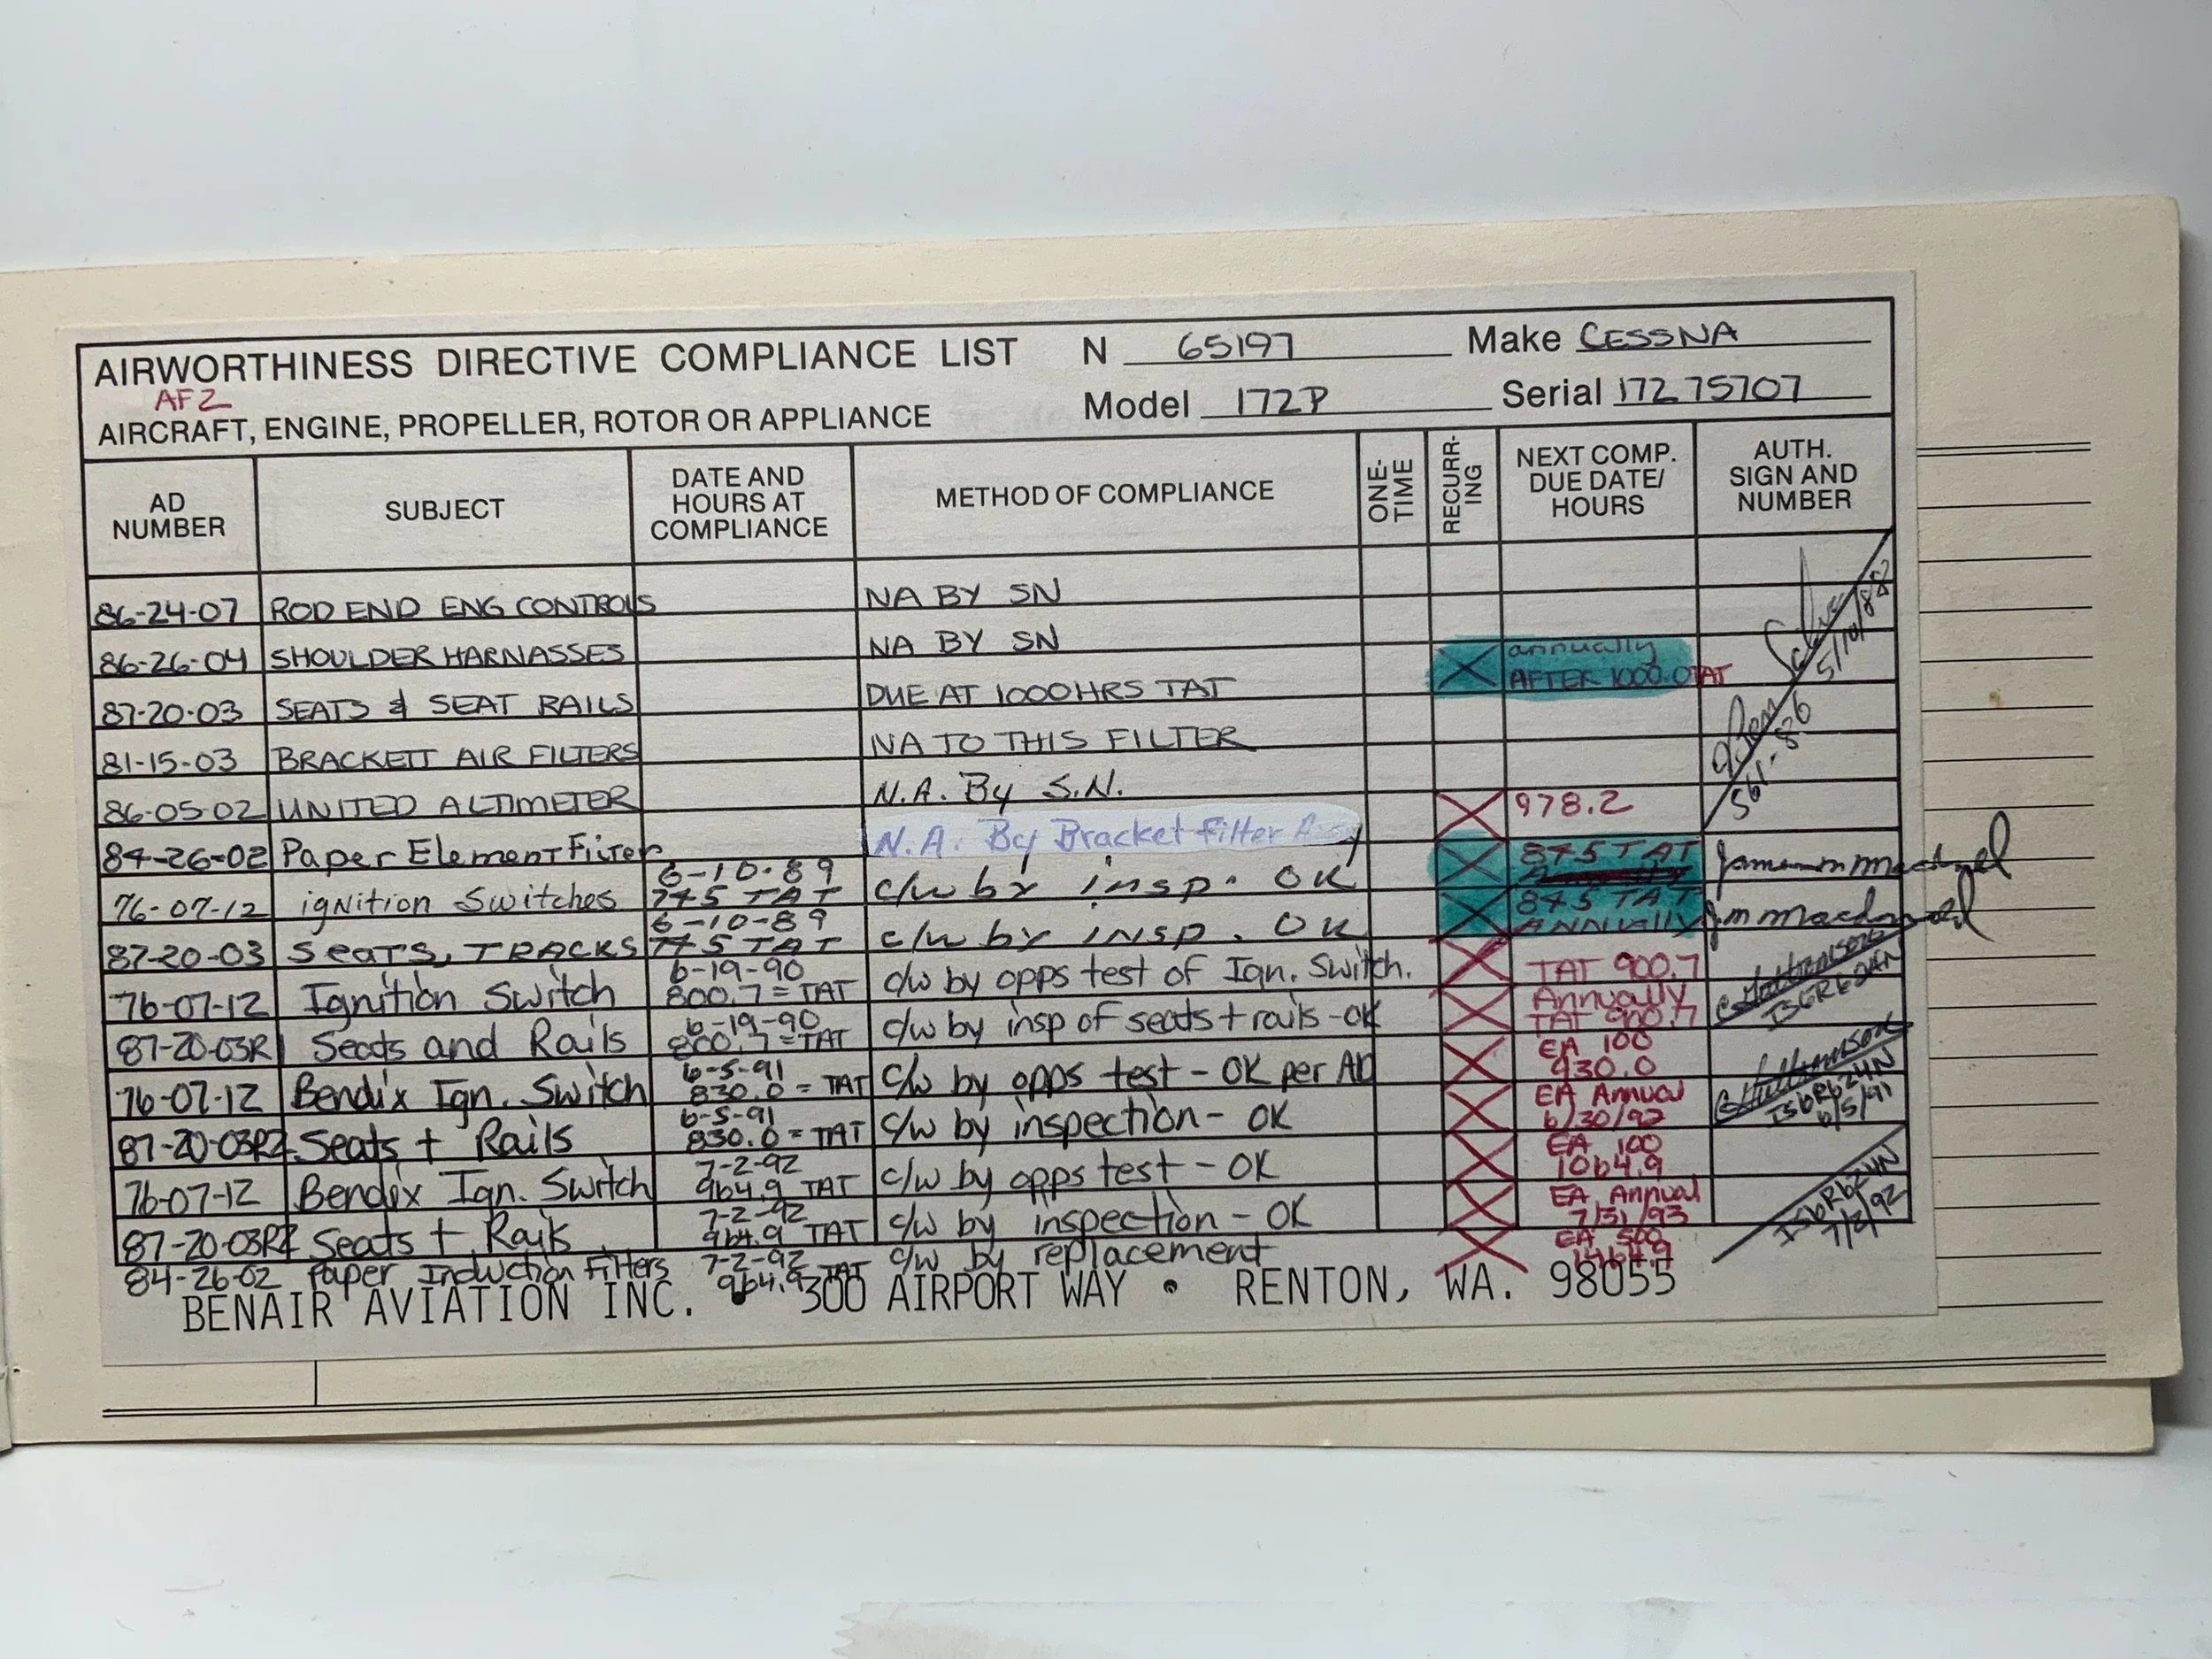 AIRWORTHINESS DIRECTIVE COMPLIANCE LIST N 65197 Make CESSNA
AF2
AIRCRAFT, ENGINE, PROPELLER, ROTOR OR APPLIANCE Model 172P Serial 172 75707
AD NUMBER SUBJECT DATE AND HOURS AT COMPLIANCE METHOD OF COMPLIANCE ONE-TIME RECURR-ING NEXT COMP. DUE DATE/ HOURS AUTH. SIGN AND NUMBER
86-24-07 ROD END ENG CONTROLS NA BY SN
86-26-04 SHOULDER HARNASSES NA BY SN
87-20-03 SEATS & SEAT RAILS DUE AT 1000HRS TAT X annually AFTER 1000.0TAT
5/10/88
81-15-03 BRACKETT AIR FILTERS NA TO THIS FILTER
86-05-02 UNITED ALTIMETER N.A. By S.N.
84-26-02 Paper Element Filter N.A. By Bracket Filter Assy X 978.2
76-07-12 ignition Switches 6-10-89 775 TAT c/w by insp. OK X 875 TAT
87-20-03 Seats, TRACKS 6-10-89 775 TAT c/w by insp. OK X 875 TAT ANNUALLY
76-07-12 Ignition Switch 6-19-90 800.7 = TAT c/w by opps test of Ign. Switch. X TAT 900.7
87-20-03R1 Seats and Rails 6-19-90 800.7 = TAT c/w by insp of seats + rails - OK X Annually TAT 900.7
76-07-12 Bendix Ign. Switch 6-5-91 830.0 = TAT c/w by opps test - OK per AD X EA 100 930.0
87-20-03R2 Seats + Rails 6-5-91 830.0 = TAT c/w by inspection - OK X EA Annual 6/30/92 6/5/91
76-07-12 Bendix Ign. Switch 7-2-92 964.9 TAT c/w by opps test - OK X EA 100 1064.9
87-20-03R2 Seats + Rails 7-2-92 964.9 TAT c/w by inspection - OK X EA Annual 7/31/93 7/2/92
84-26-02 Paper Induction Filters 7-2-92 964.9 TAT c/w by replacement X EA 500 1464.9
BENAIR AVIATION INC. • 300 AIRPORT WAY • RENTON, WA. 98055